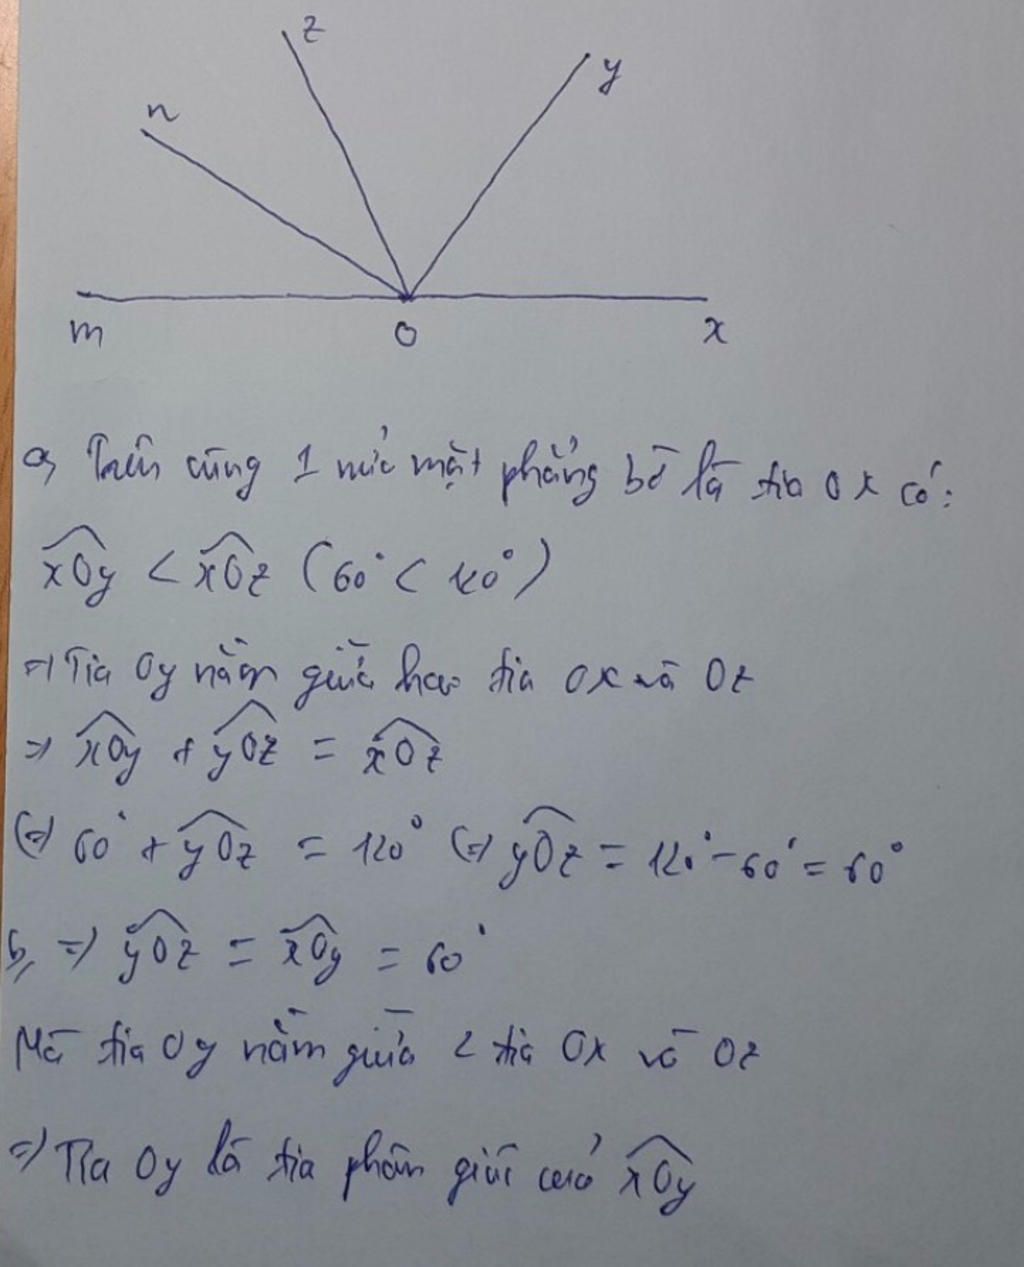 z
y
n
m
O
x
a, Trên cùng 1 nửa mặt phẳng bờ là tia Ox có:
xOy < xOz (60° < 120°)
=> Tia Oy nằm giữa hai tia Ox và Oz
=> xOy + yOz = xOz
(=) 60° + yOz = 120° (=) yOz = 120° - 60° = 60°
b, => yOz = xOy = 60°
Mà tia Oy nằm giữa 2 tia Ox và Oz
=> Tia Oy là tia phân giác của xOy